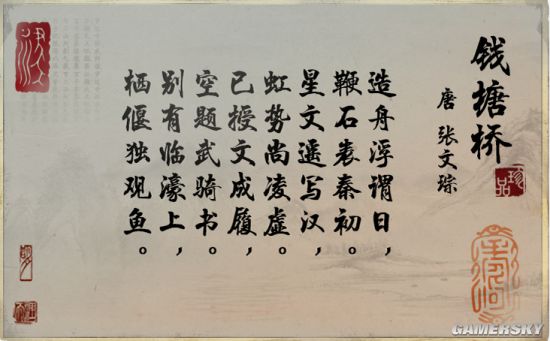 钱塘桥
唐 张文琮
珍品
造舟浮谓日，
鞭石表秦初。
星文遥写汉，
虹势尚凌虚。
已授文成履，
空题武骑书。
别有临濠上，
栖偃独观鱼。
GAMERSKY